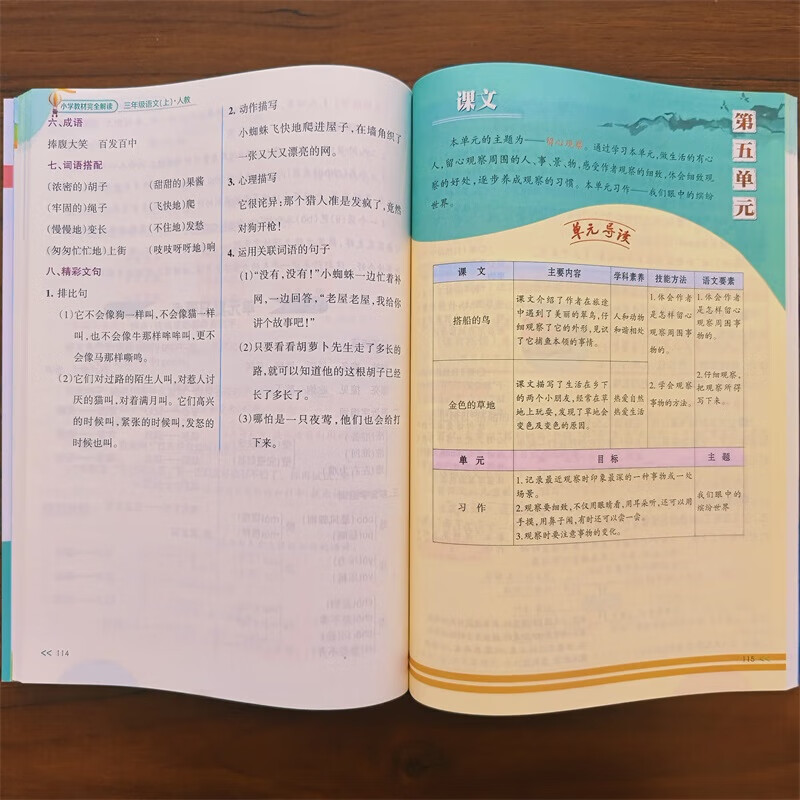 小学教材完全解读 三年级语文(上)·人教
六、成语
捧腹大笑 百发百中
七、词语搭配
(浓密的)胡子 (甜甜的)果酱
(牢固的)绳子 (飞快地)爬
(慢慢地)变长 (不住地)发愁
(匆匆忙忙地)上街 (吱吱呀呀地)响
八、精彩文句
1. 排比句
(1)它不会像狗一样叫,不会像猫一样
叫,也不会像牛那样哞哞叫,更不
会像马那样嘶鸣。
(2)它们对过路的陌生人叫,对惹人讨
厌的猫叫,对着满月叫。它们高兴
的时候叫,紧张的时候叫,发怒的
时候也叫。
2. 动作描写
小蜘蛛飞快地爬进屋子,在墙角织了
一张又大又漂亮的网。
3. 心理描写
它很诧异:那个猎人准是发疯了,竟然
对狗开枪!
4. 运用关联词语的句子
(1)“没有,没有!”小蜘蛛一边忙着补
网,一边回答,“老屋老屋,我给你
讲个故事吧!”
(2)只要看看胡萝卜先生走了多长的
路,就可以知道他的这根胡子已经
长了多长了。
(3)哪怕是一只夜莺,他们也会给打
下来。
<< 114
课文
第五单元
本单元的主题为——留心观察。通过学习本单元,做生活的有心
人,留心观察周围的人、事、景、物,感受作者观察的细致,体会细致观
察的好处,逐步养成观察的习惯。本单元习作——我们眼中的缤纷
世界。
单元导读
课 文 主要内容 学科素养 技能方法 语文要素
搭船的鸟
课文介绍了作者在旅途
中遇到了美丽的翠鸟,仔
细观察了它的外形,见识
了它捕鱼本领的事情。
人和动物
和谐相处
1.体会作者
是怎样留心
观察周围事
物的。
1.体会作者
是怎样留心
观察周围事
物的。
金色的草地
课文描写了生活在乡下
的两个小朋友,经常在草
地上玩耍,发现了草地会
变色及变色的原因。
热爱自然
热爱生活
2.学会观察
事物的方法。
2.仔细观察,
把观察所得
写下来。
单 元 目 标 主 题
习 作
1.记录最近观察时印象最深的一种事物或一处
场景。
2.观察要细致,不仅用眼睛看,用耳朵听,还可以用
手摸,用鼻子闻,有时还可以尝一尝。
3.观察时要注意事物的变化。
我们眼中的
缤纷世界
115 <<